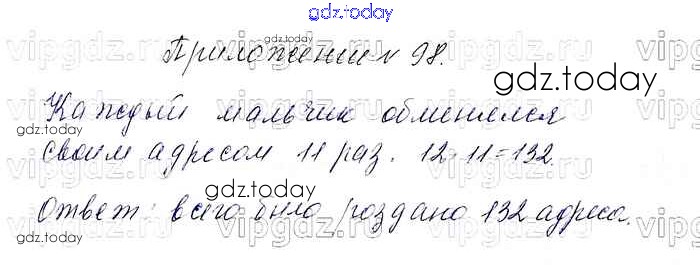 gdz.today
Приложение № 98.
gdz.today
Каждый мальчик обменялся
gdz.today
своим адресом 11 раз. 12·11=132.
gdz.today
Ответ: всего было роздано 132 адреса.
gdz.today